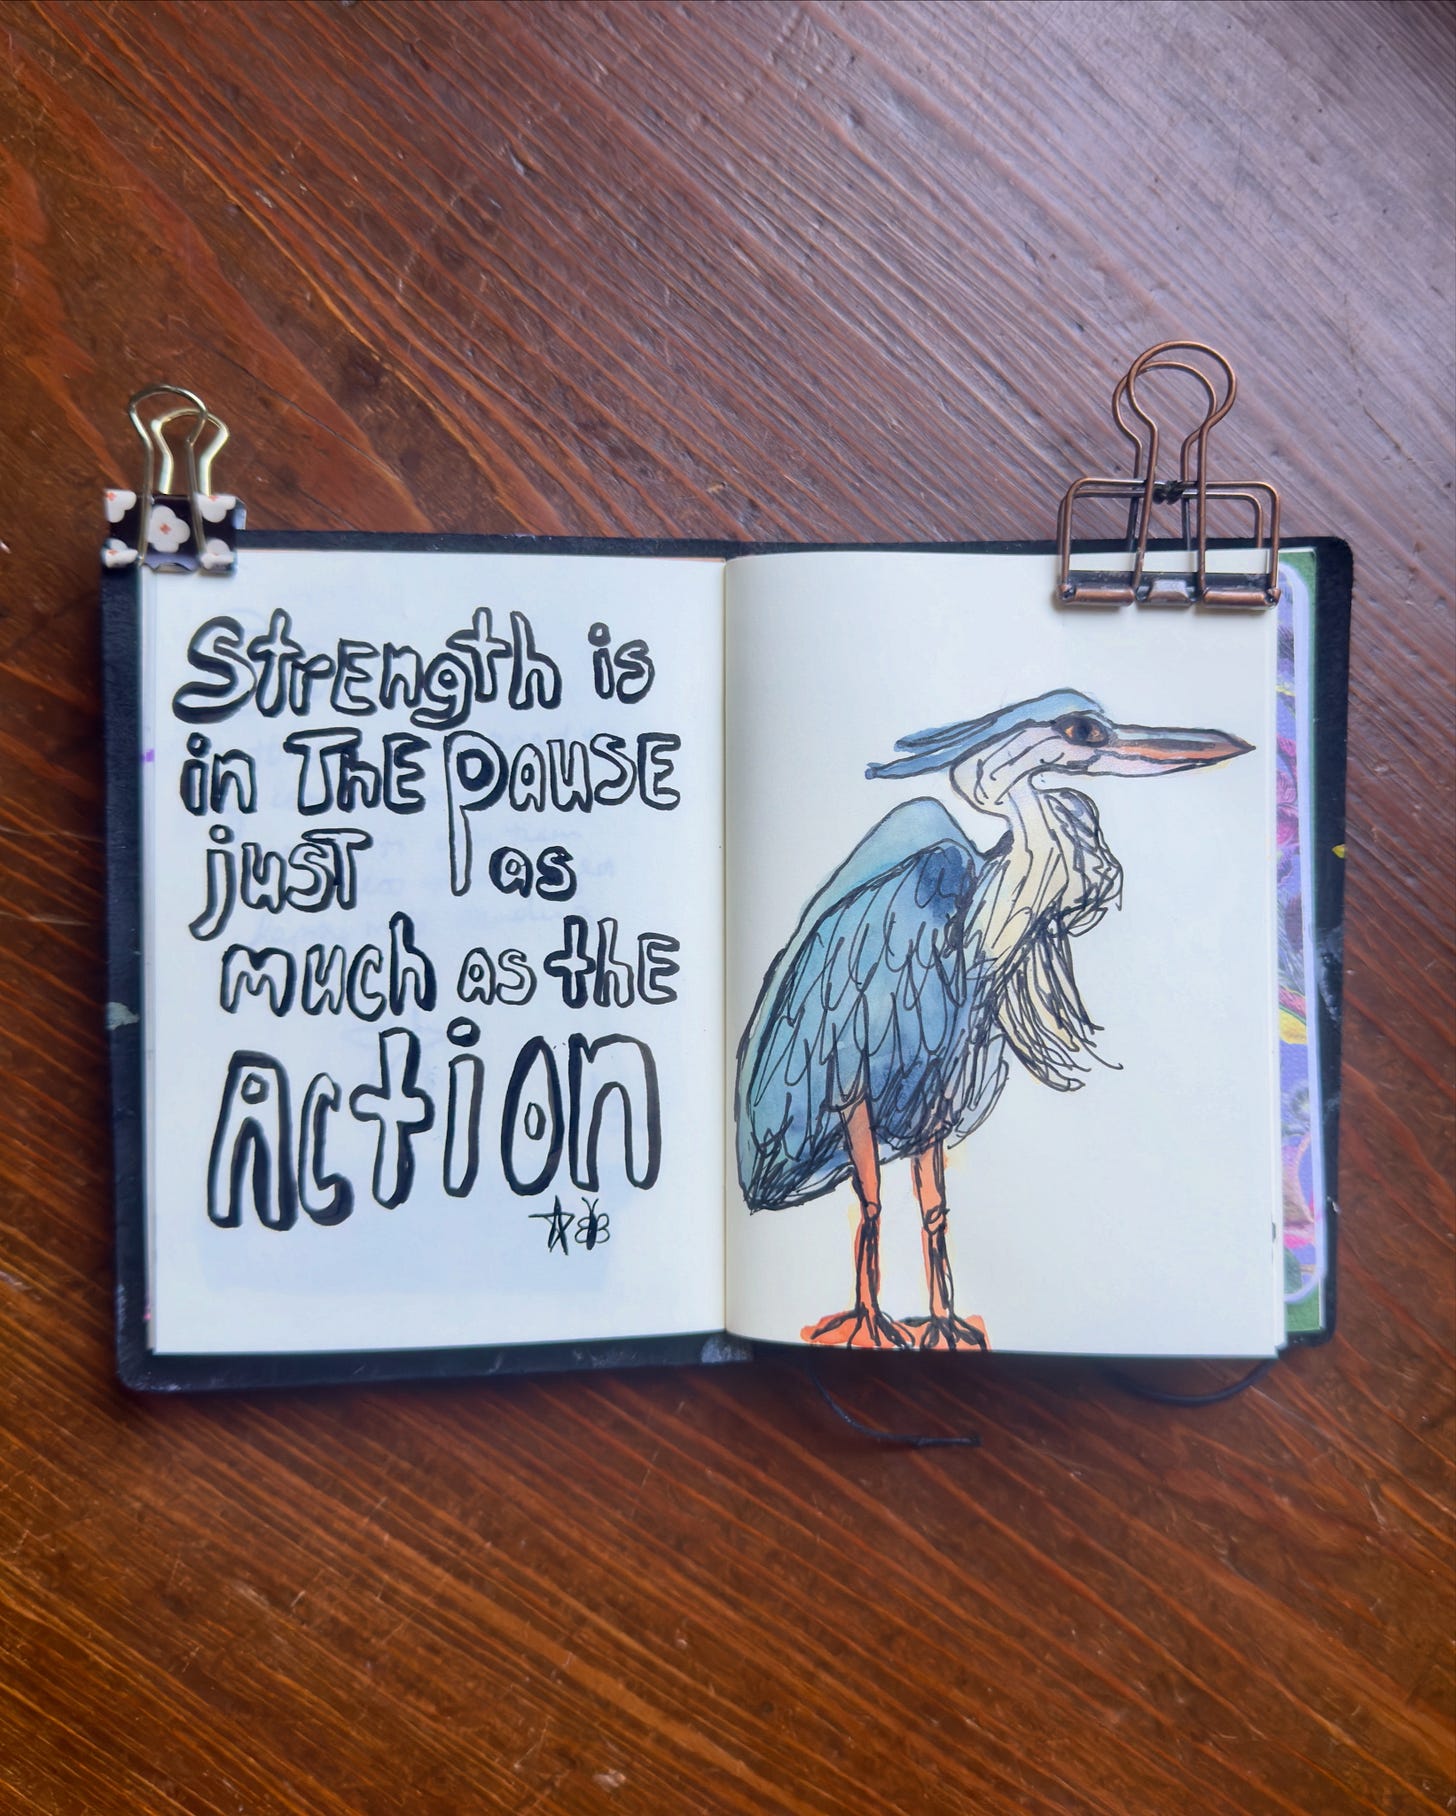 StrEngth is
in ThE PauSE
jusT as
much as thE
Action